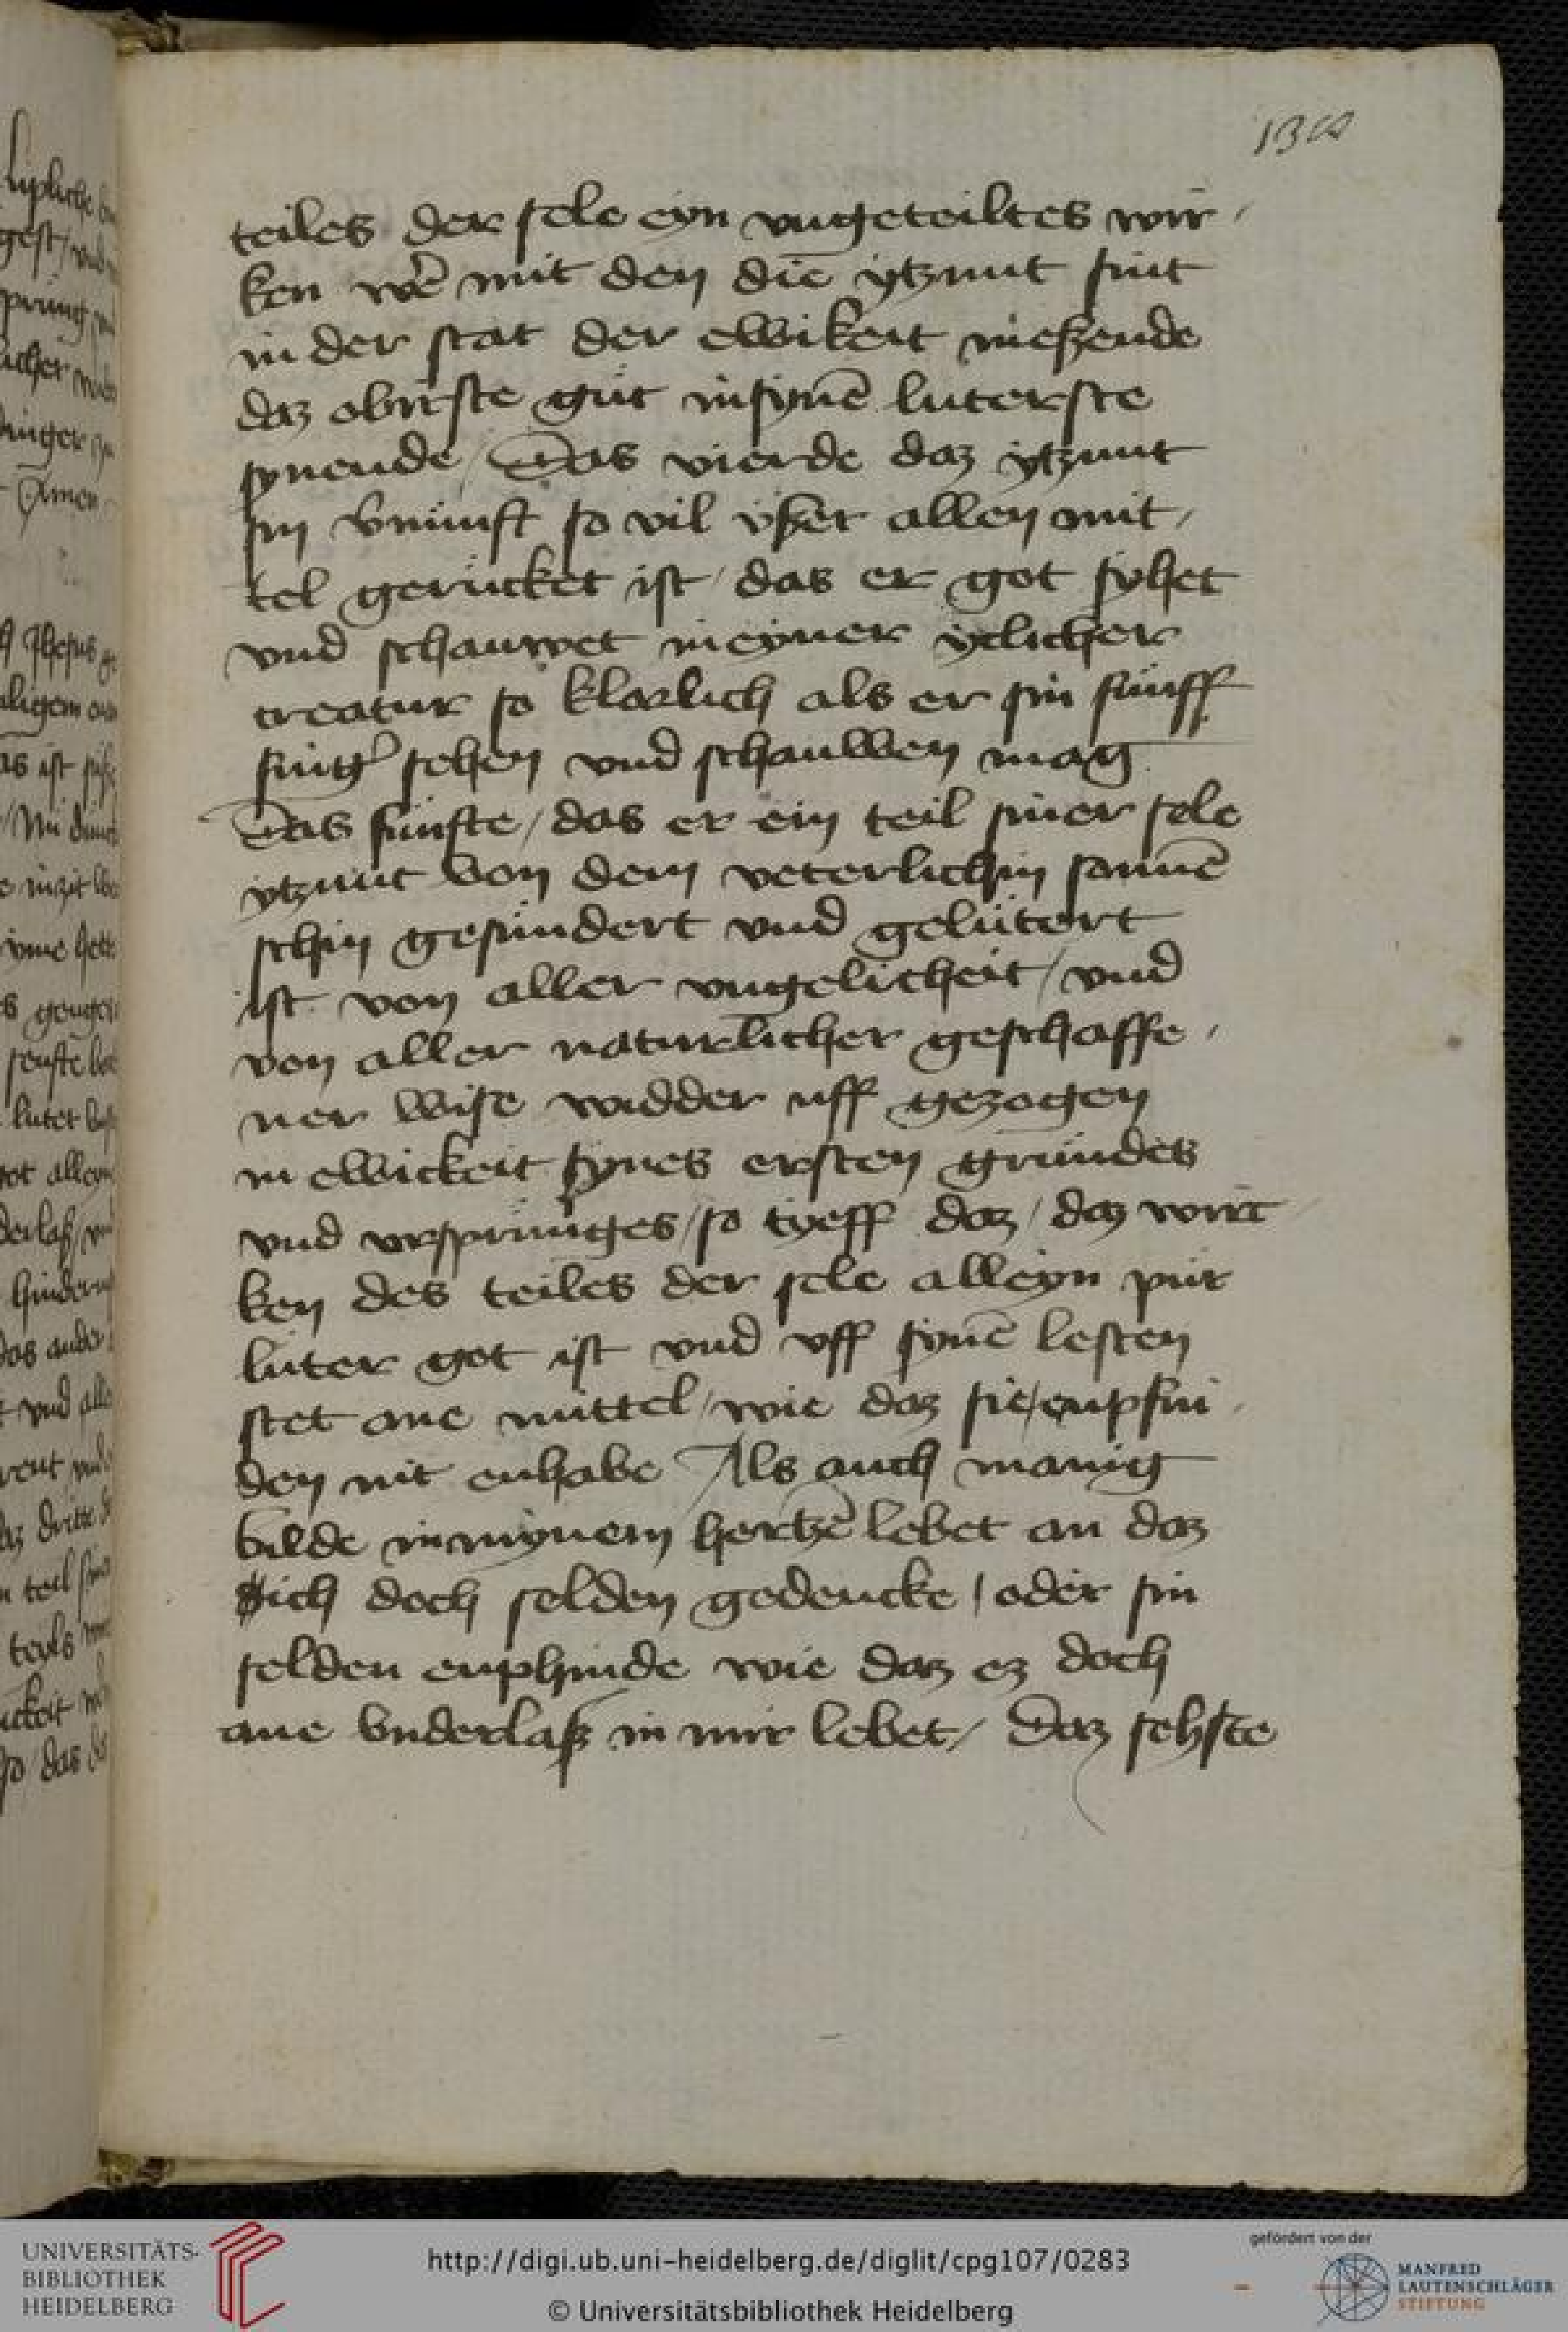 teiles der sele eyn vngeteiltes wir /
ken wē mit den die ytzunt sint
in der stat der ewikeit nießende
daz obirste gůt in synē luterste
synende / Das vierde daz ytzunt
sin v̄nunft so vil vber allen mit /
tel gerucket ist / das er got syhet
vnd schauwet in eyner yclicher
creatur so klorlich als er sin funff
fing̉ sehen vnd schauwen mag
Das funfte / das er ein teil siner sele
ytzunt von dem veterlichin sonnē
schin gesundert vnd gelutert
ist von aller vngelicheit / vnd
von aller naturlicher geschaffe /
ner wise widder uff gezogen
in ewickeit synes ersten grundes
vnd vrspringes / so tyeff daz / daz wirc
ken des teiles der sele alleyn pur
luter got ist vnd vff synē lesten
stet ane mittel / wie daz sie / enpfin /
den nit enhabe Als auch manig
bilde in mynem hertzē lebet an daz
ich doch selden gedencke / oder sin
selden enphinde wie daz ez doch
ane vnderlaß in mir lebet / Daz sehste
UNIVERSITÄTS-
BIBLIOTHEK
HEIDELBERG
http://digi.ub.uni-heidelberg.de/diglit/cpg107/0283
© Universitätsbibliothek Heidelberg
gefördert von der
MANFRED
LAUTENSCHLÄGER
STIFTUNG